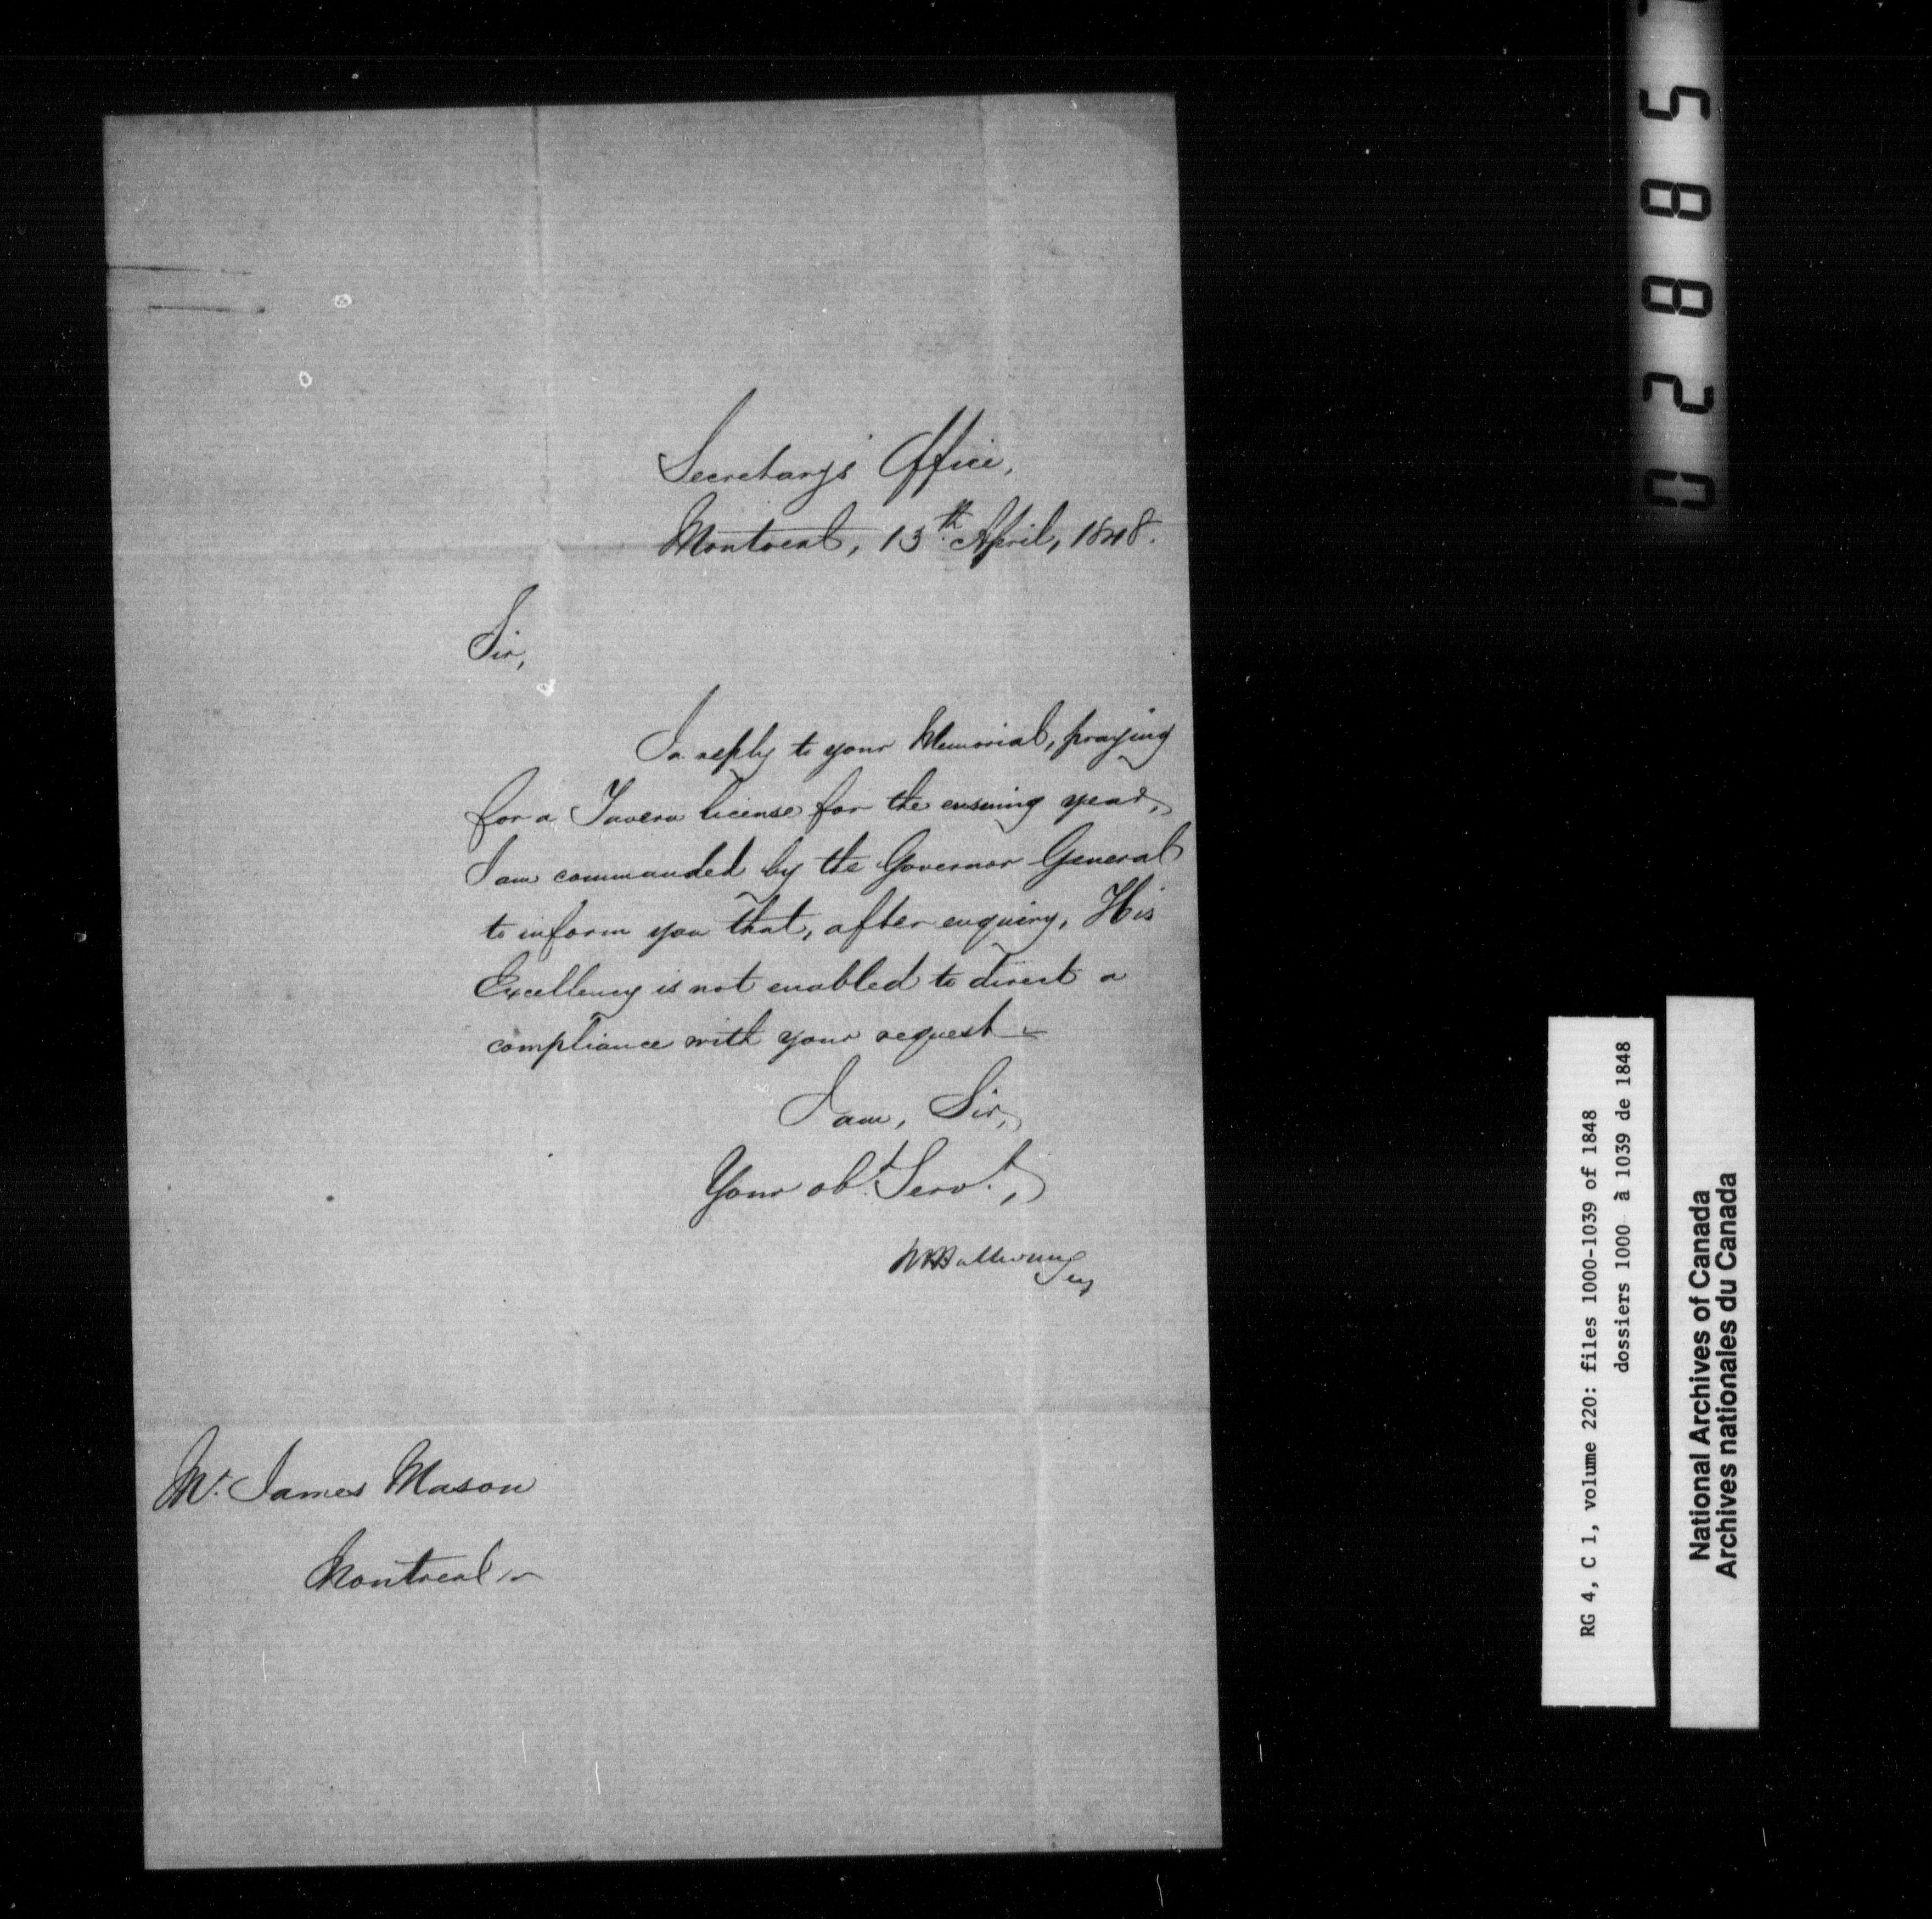 Secretary's Office,
Montreal, 13th April, 1848.
Sir,
In reply to your Memorial, praying
for a Tavern license for the ensuing year,
I am commanded by the Governor General
to inform you that, after enquiry, His
Excellency is not enabled to direct a
compliance with your request
I am, Sir,
Your obt. Servt.,
Mr. James Mason
Montreal
02885
RG 4, C 1, volume 220: files 1000-1039 of 1848
dossiers 1000 à 1039 de 1848
National Archives of Canada
Archives nationales du Canada